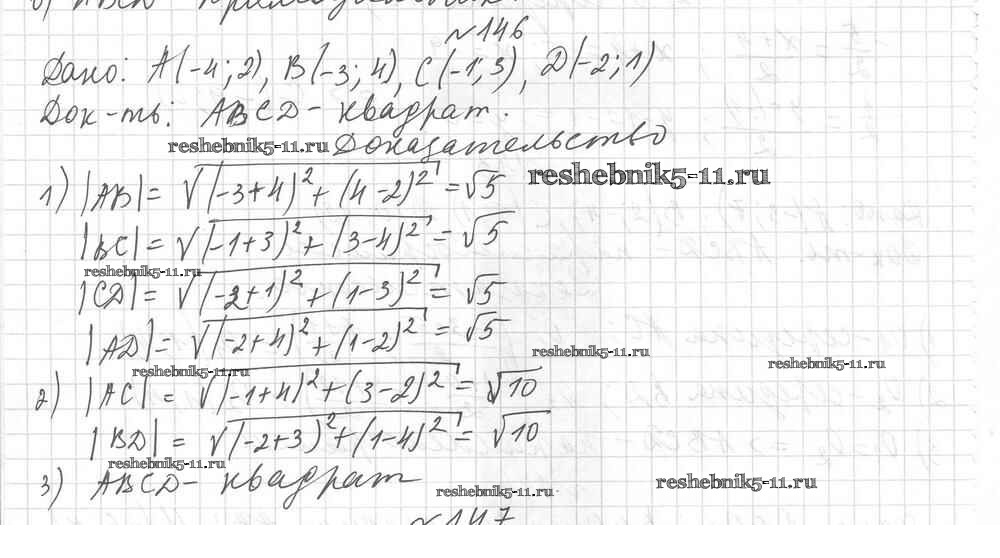 б) ABCD - прямоугольник.
~146
Дано: A(-4; 2), B(-3; 4), C(-1; 3), D(-2; 1)
Док-ть: ABCD - квадрат.
reshebnik5-11.ru Доказательство
1) |AB| = √(-3+4)² + (4-2)² = √5 reshebnik5-11.ru
|BC| = √(-1+3)² + (3-4)² = √5
reshebnik5-11.ru
|CD| = √(-2+1)² + (1-3)² = √5
|AD| = √(-2+4)² + (1-2)² = √5
reshebnik5-11.ru reshebnik5-11.ru reshebnik5-11.ru
2) |AC| = √(-1+4)² + (3-2)² = √10
|BD| = √(-2+3)² + (1-4)² = √10
reshebnik5-11.ru
3) ABCD - квадрат
reshebnik5-11.ru reshebnik5-11.ru
~147